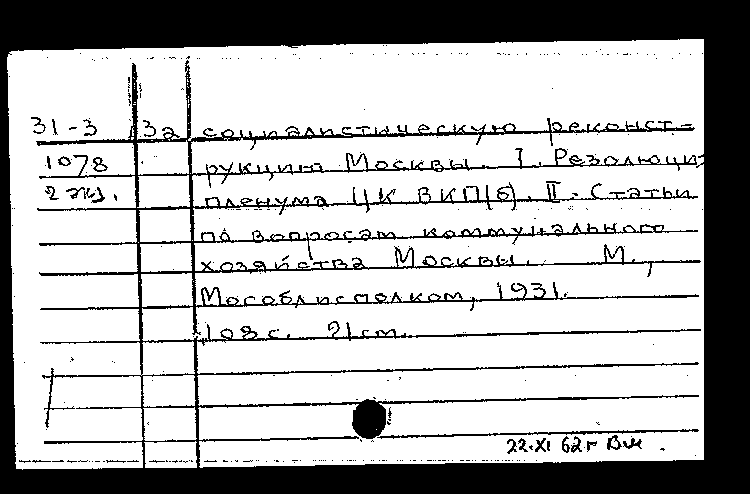 31-3 За социалистическую реконст-
1078 рукцию Москвы. I. Резолюци
2 экз. пленума ЦК ВКП(б). II. Статьи
по вопросам коммунального
хозяйства Москвы. М.,
Мособлисполком, 1931.
108 с. 21 см.
22.XI 62 г